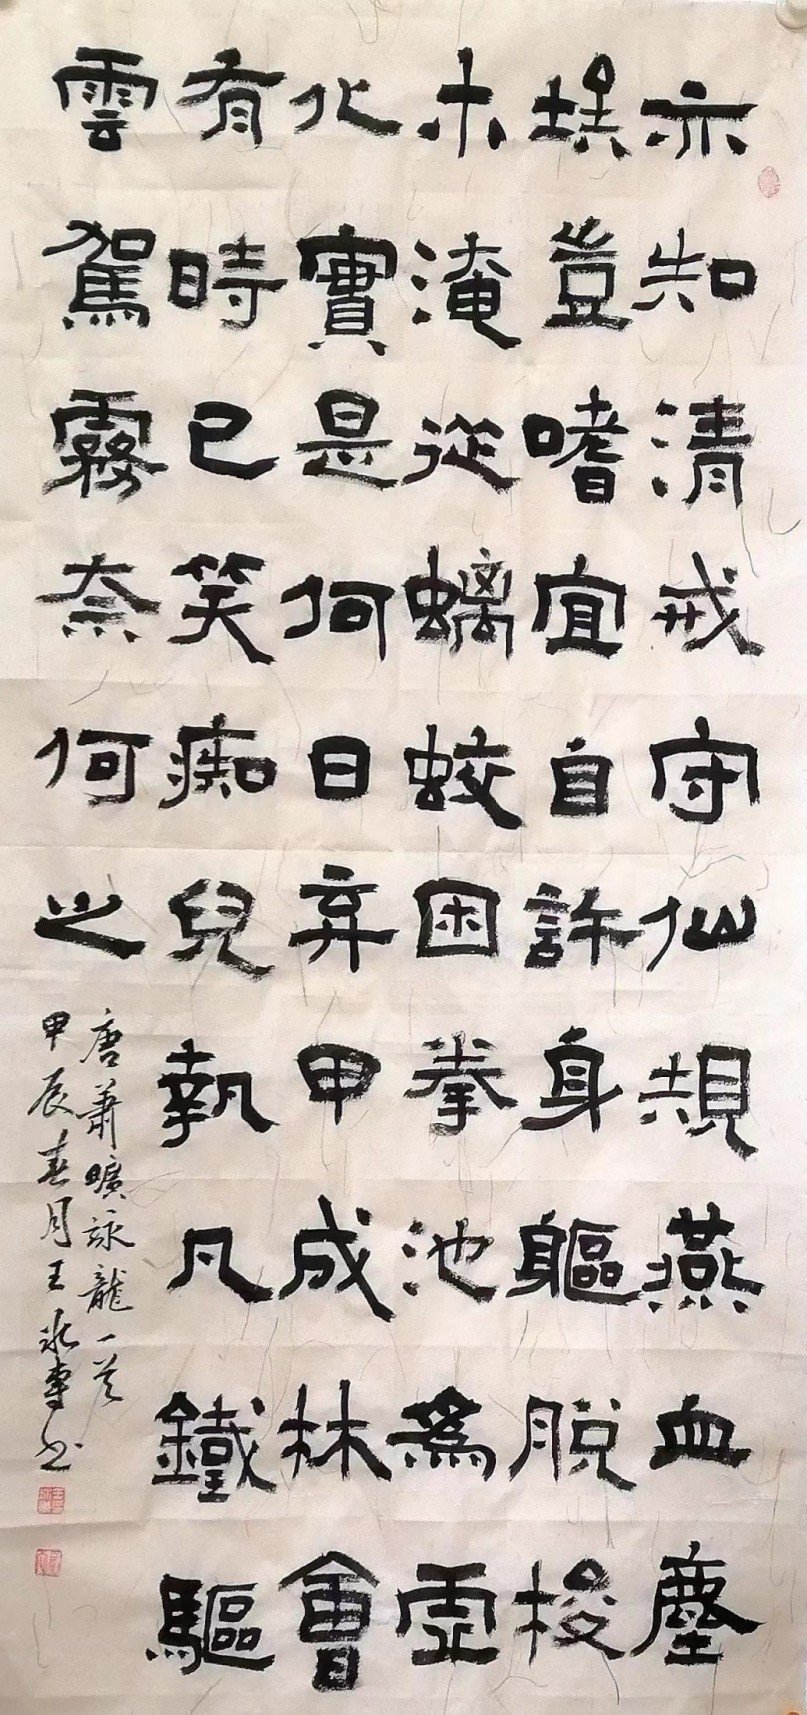 亦知清戒守仙規燕血塵
埃豈嗜宜自許身軀脫梭
木淹從螭蛟困拳池為虛
化實是何日弃甲成林會
有時已笑痴兒執凡鐵驅
雲駕霧奈何之
唐蕭曠詠龍一首
甲辰春月王永專书